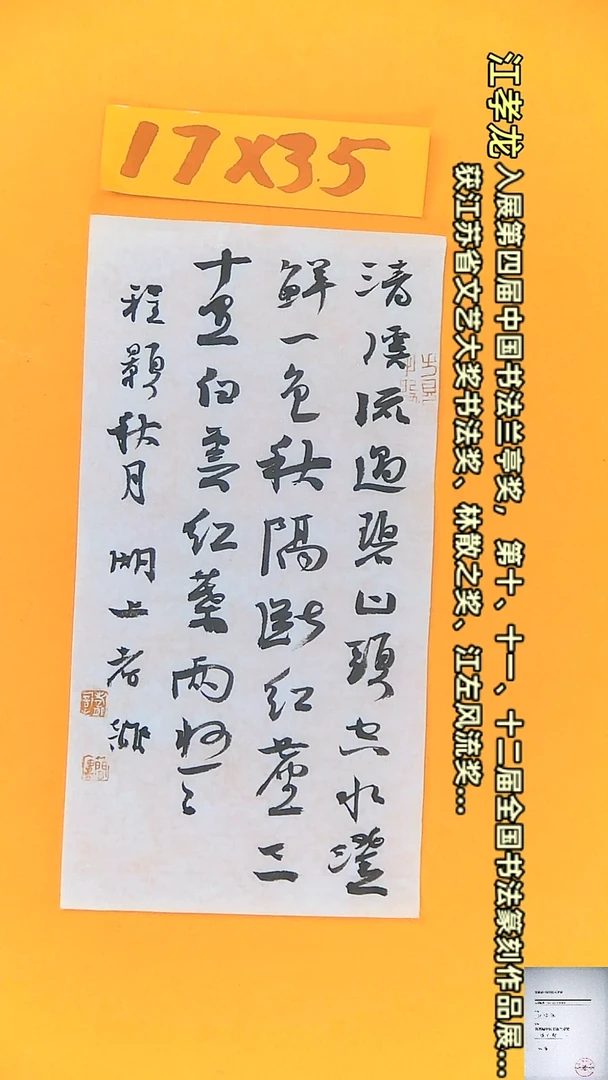 17X35
江孝龙 入展第四届中国书法兰亭奖, 第十、十一、十二届全国书法篆刻作品展...
获江苏省文艺大奖书法奖、林散之奖、江左风流奖...
清溪流過碧山頭空水澄
鮮一色秋隔斷紅塵三
十里白雲紅葉兩悠〻
程顥秋月 湖上孝龍